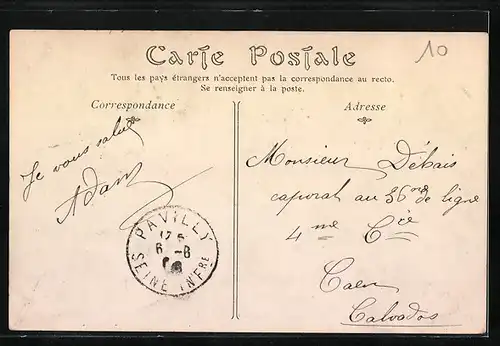 10
Carte Postale
Tous les pays étrangers n'acceptent pas la correspondance au recto.
Se renseigner à la poste.
Correspondance
Adresse
Je vous salue
Adam
PAVILLY
6 -8
SEINE INFRE
Monsieur Débais
caporal au 36 de ligne
4me Cie
Caen
Calvados